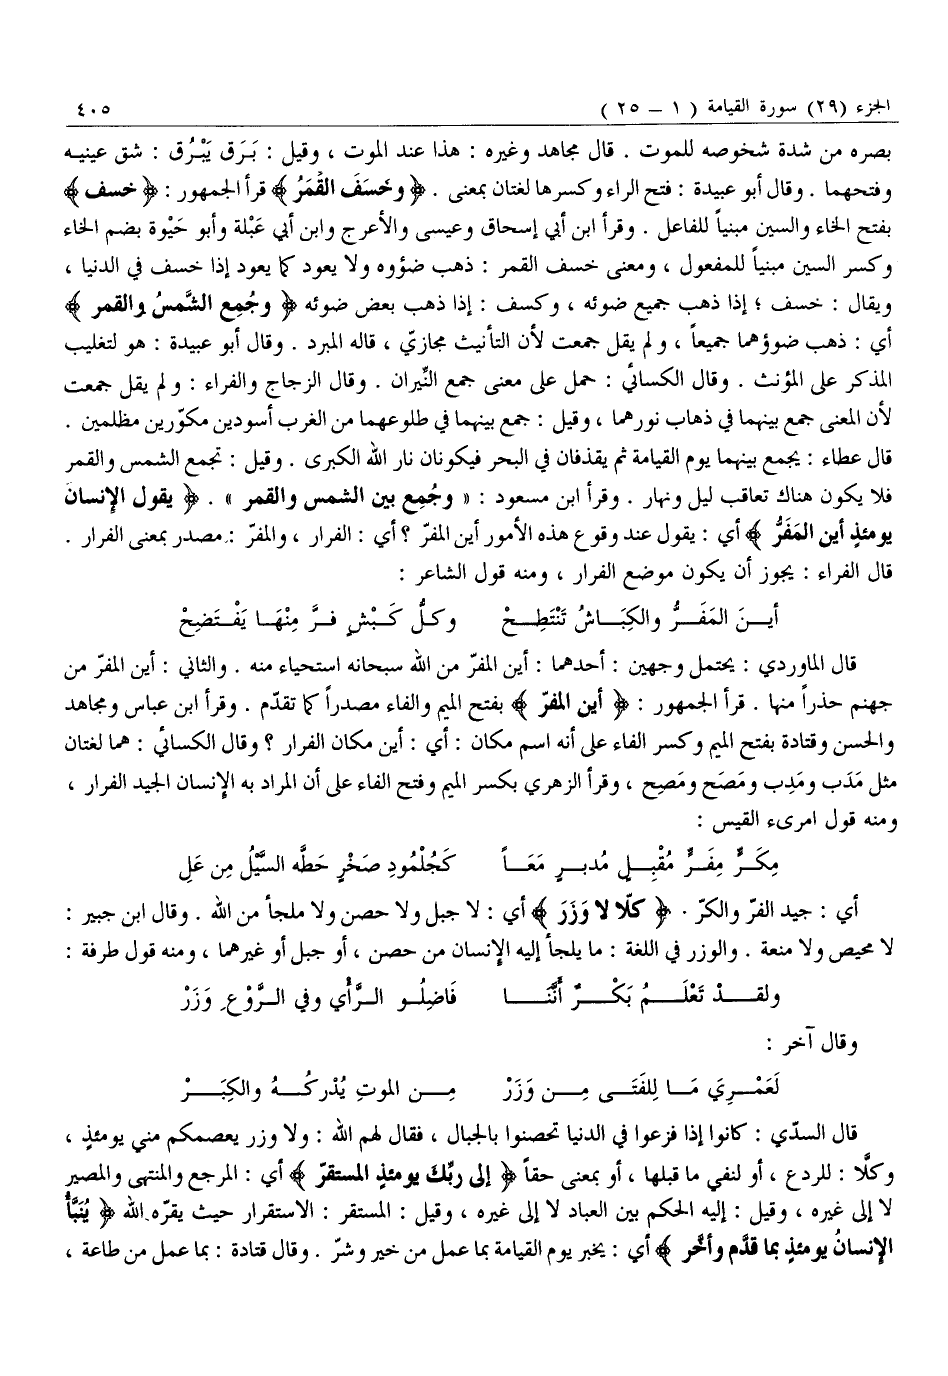 الجزء (٢٩) سورة القيامة ( ١ – ٢٥ ) ٤٠٥
بصره من شدة شخوصه للموت . قال مجاهد وغيره : هذا عند الموت ، وقيل : بَرَق يَبْرُق : شق عينيه
وفتحهما . وقال أبو عبيدة : فتح الراء وكسرها لغتان بمعنى . ﴿ وخَسَفَ القَمَرُ ﴾ قرأ الجمهور : ﴿ خسف ﴾
بفتح الخاء والسين مبنياً للفاعل . وقرأ ابن أبي إسحاق وعيسى والأعرج وابن أبي عَبْلة وأبو حَيْوة بضم الخاء
وكسر السين مبنياً للمفعول ، ومعنى خسف القمر : ذهب ضوؤه ولا يعود كما يعود إذا خسف في الدنيا ،
ويقال : خسف ؛ إذا ذهب جميع ضوئه ، وكسف : إذا ذهب بعض ضوئه ﴿ وجُمِع الشَّمسُ والقمر ﴾
أي : ذهب ضوؤهما جميعاً ، ولم يقل جمعت لأن التأنيث مجازيّ ، قاله المبرد . وقال أبو عبيدة : هو لتغليب
المذكر على المؤنث . وقال الكسائي : حمل على معنى جمع النِّيران . وقال الزجاج والفراء : ولم يقل جمعت
لأن المعنى جمع بينهما في ذهاب نورهما ، وقيل : جمع بينهما في طلوعهما من الغرب أسودين مكوّرين مظلمين .
قال عطاء : يجمع بينهما يوم القيامة ثم يقذفان في البحر فيكونان نار الله الكبرى . وقيل : تجمع الشمس والقمر
فلا يكون هناك تعاقب ليل ونهار . وقرأ ابن مسعود : « وجُمِع بين الشمس والقمر » . ﴿ يقول الإنسان
يومئذٍ أين المَفَرُّ ﴾ أي : يقول عند وقوع هذه الأمور أين المفرّ ؟ أي : الفرار ، والمفرّ : مصدر بمعنى الفرار .
قال الفراء : يجوز أن يكون موضع الفرار ، ومنه قول الشاعر :
أيـن المَفَـرُّ والكِبَـاشُ تَنْتَطِـحْ وكلُّ كَبْشٍ فرَّ مِنْهَا يَفْتَضِحْ
قال الماوردي : يحتمل وجهين : أحدهما : أين المفرّ من الله سبحانه استحياء منه . والثاني : أين المفرّ من
جهنم حذراً منها . قرأ الجمهور : ﴿ أين المفرّ ﴾ بفتح الميم والفاء مصدراً كما تقدّم . وقرأ ابن عباس ومجاهد
والحسن وقتادة بفتح الميم وكسر الفاء على أنه اسم مكان : أي : أين مكان الفرار ؟ وقال الكسائي : هما لغتان
مثل مَدَب ومَدِب ومَصَح ومَصِح ، وقرأ الزهري بكسر الميم وفتح الفاء على أن المراد به الإنسان الجيد الفرار ،
ومنه قول امرىء القيس :
مِكَـرٍّ مِفَـرٍّ مُقْبِـلٍ مُدبـرٍ مَعَـاً كَجُلْمُودِ صَخْرٍ حَطَّه السَّيْلُ مِن عَلِ
أي : جيد الفرّ والكرّ . ﴿ كلّا لا وَزَرَ ﴾ أي : لا جبل ولا حصن ولا ملجأ من الله . وقال ابن جبير :
لا محيص ولا منعة . والوزر في اللغة : ما يلجأ إليه الإنسان من حصن ، أو جبل أو غيرهما ، ومنه قول طرفة :
ولقــد تَعْلَــمُ بَكْــرٌ أنَّنَــا فَاضِلُـو الـرَّأي وفي الـرَّوْعِ وَزَرْ
وقال آخر :
لَعَمْـرِيَ مَـا لِلفَتَـى مِـن وَزَرْ مِـن الموتِ يُدْركُـهُ والكِبَـرْ
قال السدّي : كانوا إذا فزعوا في الدنيا تحصنوا بالجبال ، فقال لهم الله : ولا وزر يعصمكم مني يومئذٍ ،
وكلَّا : للردع ، أو لنفي ما قبلها ، أو بمعنى حقاً ﴿ إلى ربِّك يومئذٍ المستقرّ ﴾ أي : المرجع والمنتهى والمصير
لا إلى غيره ، وقيل : إليه الحكم بين العباد لا إلى غيره ، وقيل : المستقر : الاستقرار حيث يقرّه الله ﴿ يُنَبَّأُ
الإنسانُ يومئذٍ بما قدَّم وأخَّر ﴾ أي : يخبر يوم القيامة بما عمل من خير وشرّ . وقال قتادة : بما عمل من طاعة ،